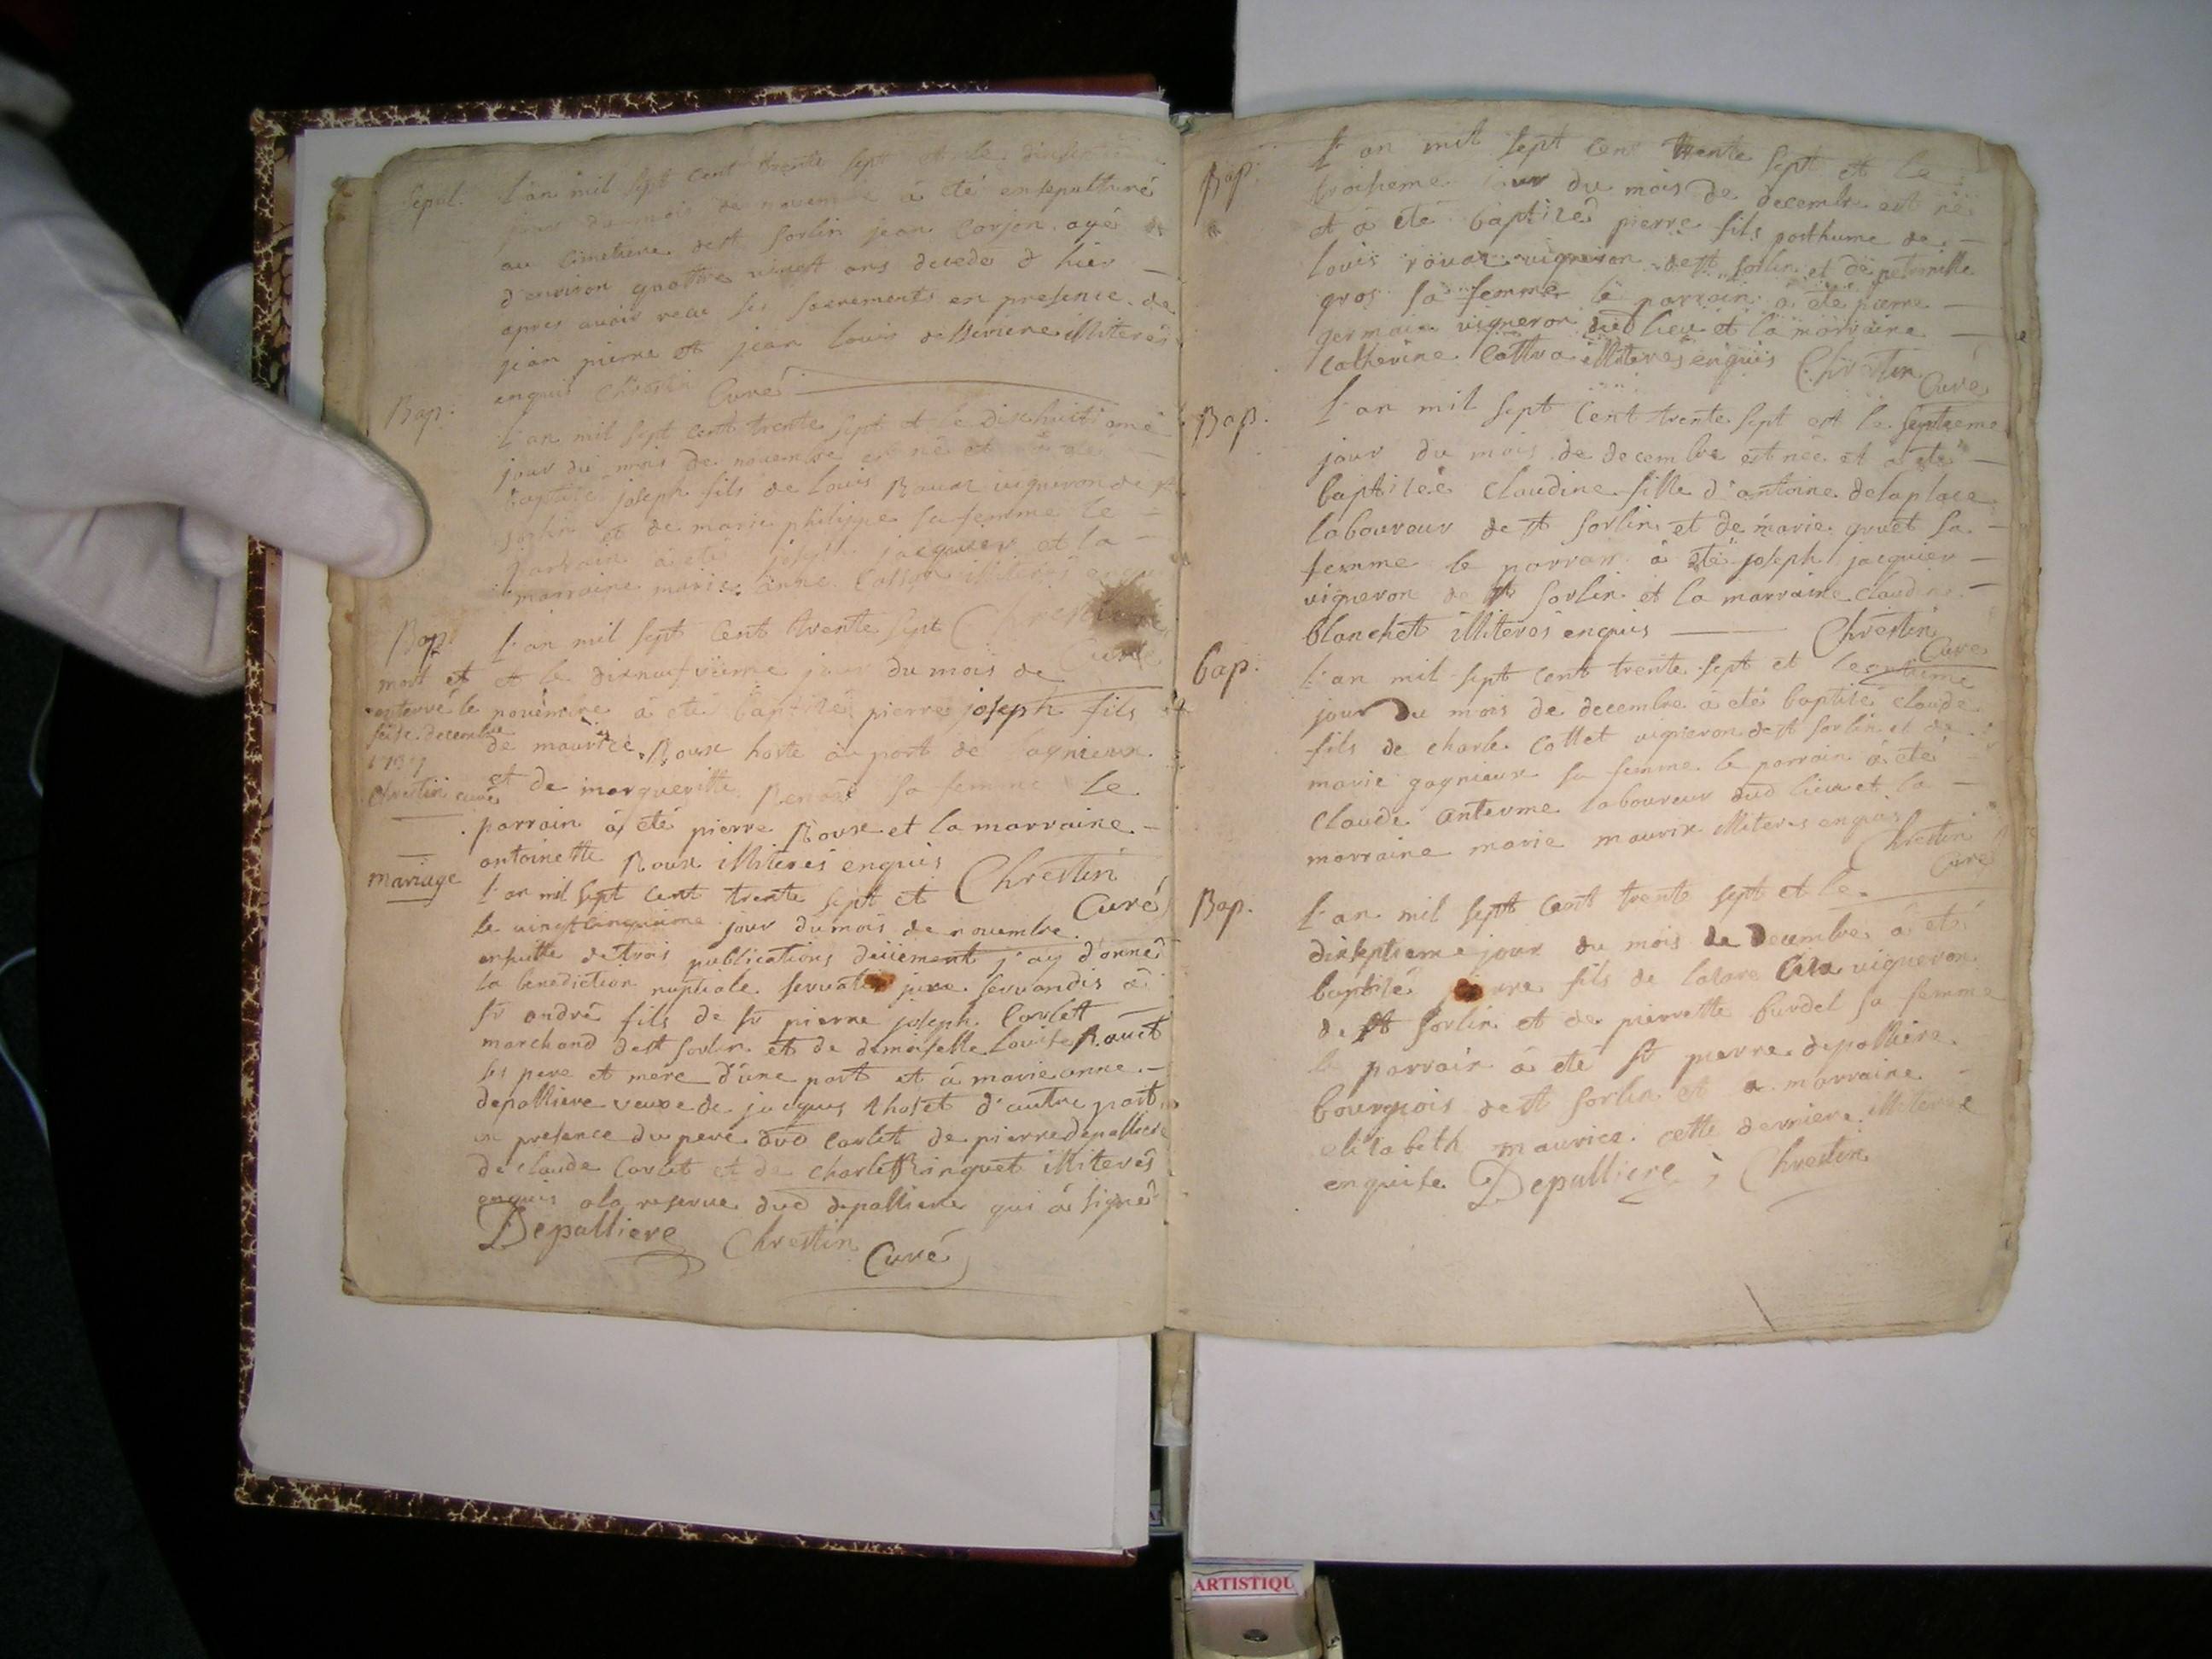 Sepul. L'an mil sept cent trente sept et le
jour du mois de novembre à été ensepulturé
au Cimetiere de st Sorlin jean Corjon agé
d'environ quattre vingt ans decedé d'hier
apres avoir recu ses sacrements en presence de
jean pierre et jean Louis illiterés
enquis Chrestin Curé
Bap. L'an mil sept cent trente sept et le dixhuitieme
jour du mois de novembre est né et à été
baptisé joseph fils de Louis Roux vigneron de st
sorlin et de marie philippe sa femme le
parrain à été joseph jacquier et la
marraine marie anne illiterés enquis
Chrestin
Curé
Bap. L'an mil sept cent trente sept
et le dixneufvieme jour du mois de
novembre à été baptisé pierre joseph fils
de maurice Roux hoste au port de lagnieux
et de margueritte sa femme le
parrain à été pierre Roux et la marraine
antoinette Roux illiterés enquis Chrestin
Curé
mort et
enterré le
seise decembre
1737
Chrestin curé
mariage L'an mil sept cent trente sept et
le vingtcinquieme jour du mois de novembre
ensuitte de trois publications düiement j'ay donné
la benediction nuptiale servatis jure servandis à
sr andré fils de sr pierre joseph Carlet
marchand de st sorlin et de demoiselle Louise Rouët
ses pere et mere d'une part et à marie anne
depalliere veuve de jacques thoset d'autre part
en presence du pere dud Carlet de pierre depalliere
de claude Carlet et de charle Ringuet illiterés
enquis ala reserve dud depalliere qui à signé
Depalliere Chrestin Curé
Bap. L'an mil sept cent trente sept et le
troisieme jour du mois de decembre est né
et à été baptised pierre fils posthume de
Louis rouar vigneron de st sorlin et de petronille
gros sa femme le parrain à été pierre
germain vigneron dud lieu et la marraine
Catherine illiterés enquis Chrestin
Curé
Bap. L'an mil sept cent trente sept et le septieme
jour du mois de decembre est née et à été
baptisée Claudine fille d'antoine delaplace
laboureur de st sorlin et de marie gruet sa
femme le parrain à été joseph jacquier
vigneron de st sorlin et la marraine claudine
blanchet illiterés enquis Chrestin
Curé
bap. L'an mil sept cent trente sept et le onzieme
jour du mois de decembre à été baptisé claude
fils de charle Cottet vigneron de st sorlin et de
marie gagnieux sa femme le parrain à été
Claude anterme laboureur dud lieu et la
marraine marie maurix illiterés enquis
Chrestin
Curé
Bap. L'an mil sept cent trente sept et le
dixseptieme jour du mois de decembre à été
baptisé pierre fils de vigneron
de st sorlin et de pierrette burdel sa femme
le parrain à été sr pierre depalliere
bourgeois de st sorlin et marraine
elisabeth maurice cette derniere illiterée
enquise Depalliere Chrestin
ARTISTIQU